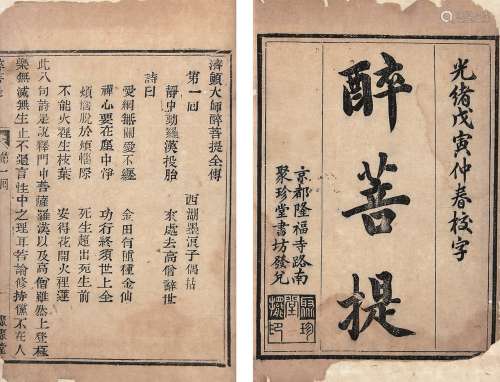 光緒戊寅仲春校字
醉菩提
京都隆福寺路南
聚珍堂書坊發兌
聚珍堂擺印
濟顛大師醉菩提全傳
西湖墨浪子偶拈
第一回
靜中動羅漢投胎
來處去高僧辭世
詩曰
愛網無關愛不纏
金田有種種金仙
禪心要在塵中淨
功行終須世上全
煩惱脫於煩惱際
死生超出死生前
不能火裡生枝葉
安得花開火裡蓮
此八句詩是說釋門中菩薩羅漢以及高僧雖然上登極
樂無滅無生止不過盲性中之理耳若論修持儻不在人
第一回